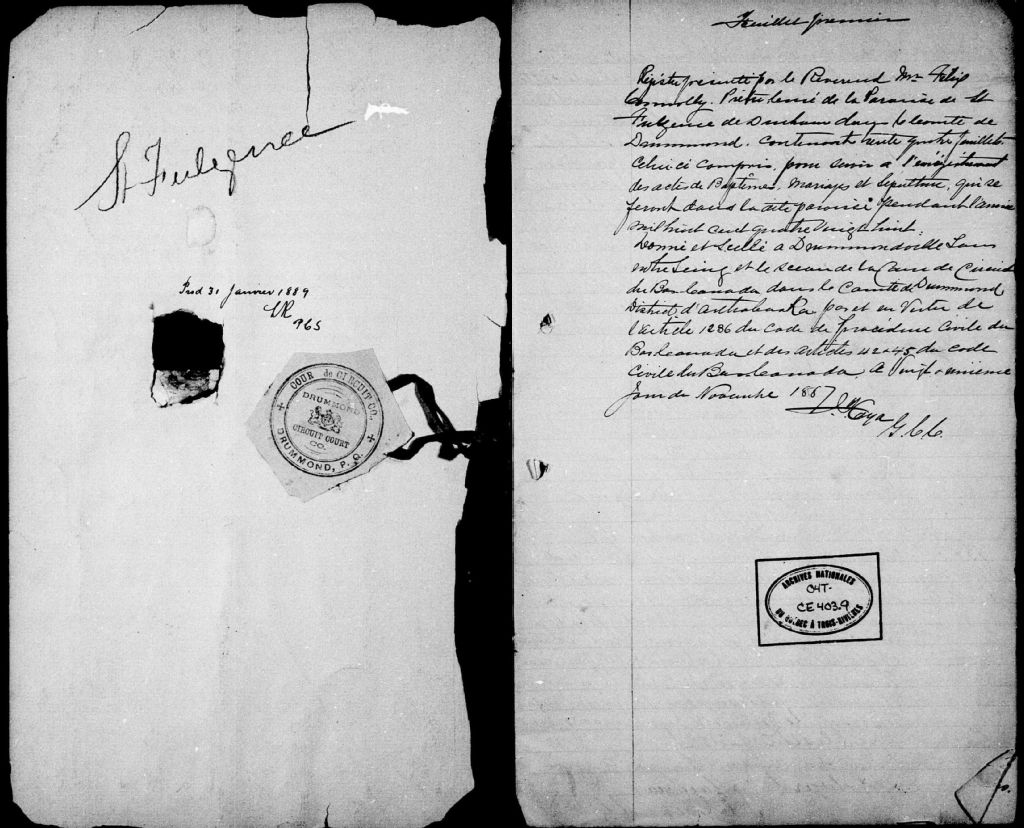 St Fulgence
Prod 31 Janvier 1889
965
COUR de CIRCUIT CO.
DRUMMOND
CIRCUIT COURT
CO.
DRUMMOND, P. Q.
Feuillet premier
Régistre présenté par le Reverend Mr Felix
Connolly. Prêtre Curé de la Paroisse de St
Fulgence de Durham dans le Comté de
Drummond. Contenant trente quatre feuillets
Celui ci compris, pour servir a l'enrégistrement
des actes de Baptêmes, Mariages et Sépulture, qui se
feront dans la dite paroisse pendant l'année
mil huit cent quatre vingt huit.
Donné et Scellé a Drummondville Sous
notre Seing et le sceau de la Cour de Circuit
du Bas Canada dans le Comté de Drummond
District d'Arthabaska par et en Vertu de
l'article 1286 du Code de Procédure Civile du
Bas Canada et des articles 42 & 45 du Code
Civile du Bas Canada, le Vingt unième
Jour de Novembre 1887
G.C.C.
ARCHIVES NATIONALES
04T-
CE 403.9
DU QUÉBEC À TROIS-RIVIÈRES